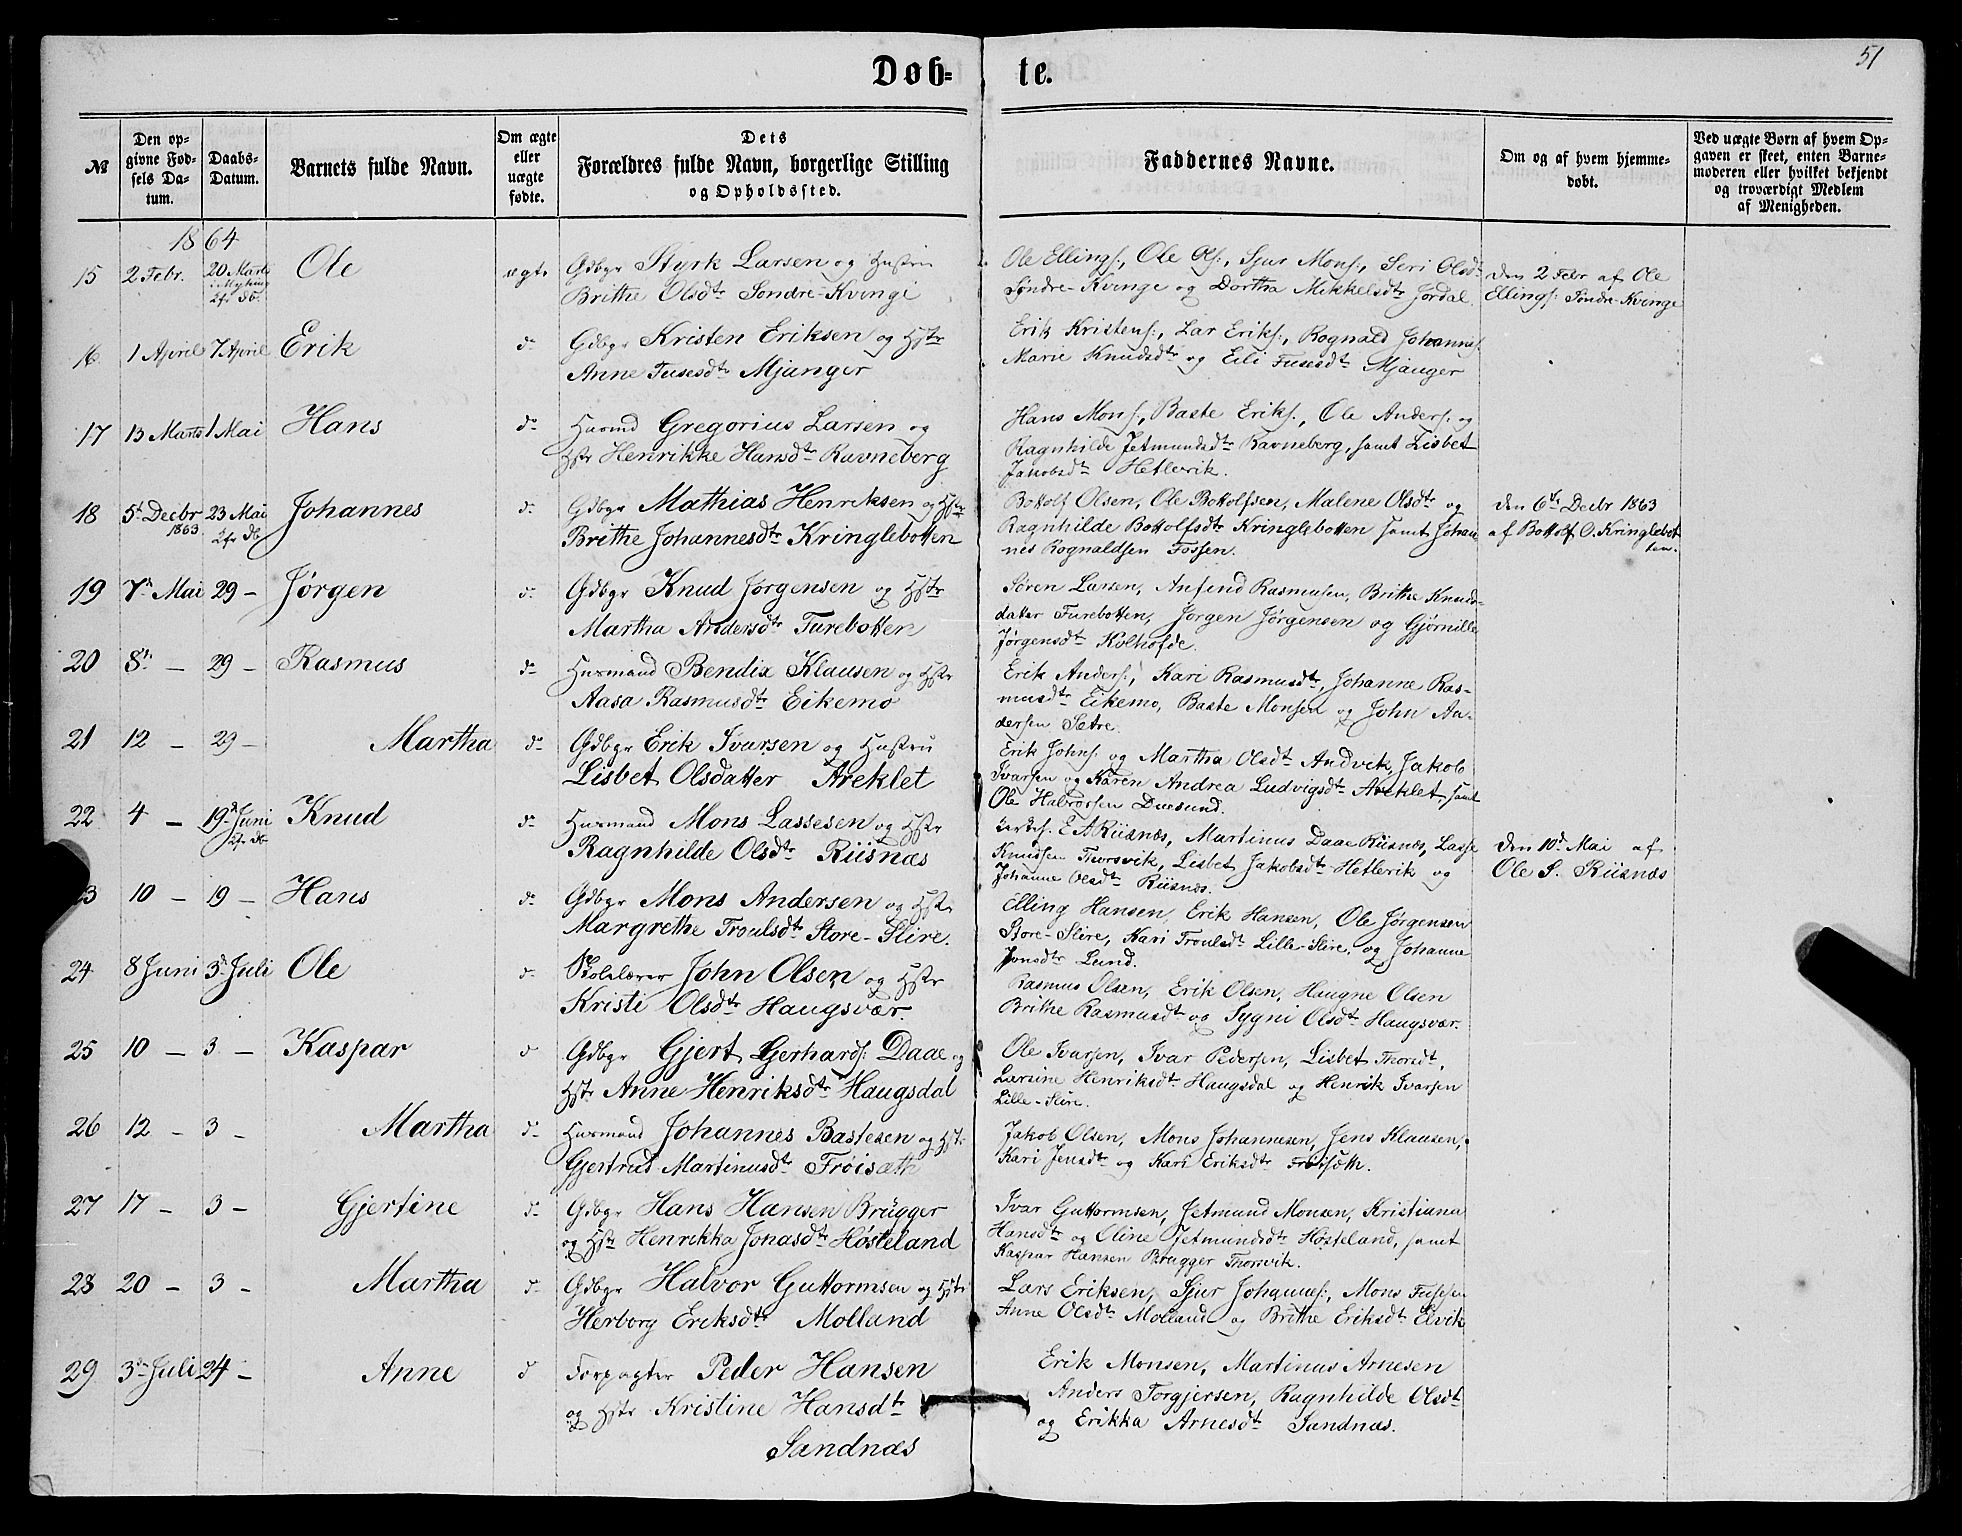 51
Døb= te.
№
Den op=
givne Fød=
sels Da=
tum.
Daabs=
Datum.
Barnets fulde Navn.
Om ægte
eller
uægte
fødte.
Dets
Forældres fulde Navn, borgerlige Stilling
og Opholdssted.
Faddernes Navne.
Om og af hvem hjemme=
døbt.
Ved uægte Børn af hvem Op=
gaven er skeet, enten Barne=
moderen eller hvilket bekjendt
og troværdigt Medlem
af Menigheden.
1864
15 2 Febr. 20 Marts Ole ægte Gdbgr Styrk Larsen og Hustru
Brithe Olsdtr Søndre-Kvinge
Ole Ellings:, Ole Ols:, Sjur Mons:, Seri Olsdtr
Søndre-Kvinge og Dortha Mikkelsdtr Jordal.
den 2 Febr af Ole
Ellings: Søndre-Kvinge
16 1 April 7 April Erik do Gdbgr Kristen Eriksen og Hstr
Anne Fusesdtr Mjanger
Erik Kristens:, Lar Eriks:, Rognald Johannes:
Marie Knudsdtr og Eili Fusesdtr Mjanger
17 13 Marts 1 Mai Hans do Husmd Gregorius Larsen og
Hstr Henrikke Hansdtr Ravneberg
Hans Mons:, Baste Eriks:, Ole Anders: og
Ragnhilde Jetmundsdtr Ravneberg, samt Lisbet
Jakobsdtr Hetlevik.
18 5t Decbr 1863 23 Mai Johannes do Gdbgr Mathias Henriksen og Hstr
Brithe Johannesdtr Kringlebotten
Bottolf Olsen, Ole Bottolfsen, Malene Olsdtr og
Ragnhilde Bottolfsdtr Kringlebotten samt Johan-
nes Rognaldsen Fossen.
den 6te Decbr 1863
af Bottolf O. Kringlebot
ten.
19 7d Mai 29 - Jørgen do Gdbgr Knud Jørgensen og Hstr
Martha Andersdtr Turebotten
Søren Larsen, Anfind Rasmusen, Brithe Knuds-
datter Furebotten, Jørgen Jørgensen og Gjørnille
Jørgensdtr Kolhofde.
20 8d - 29 - Rasmus do Husmand Bendix Klausen og Hstr
Aasa Rasmusdtr Eikemo
Erik Anders:, Kari Rasmusdtr, Johanne Ras-
musdtr Eikemo, Baste Monsen og John An-
dersen Sætre.
21 12 - 29 - Martha do Gdbgr Erik Ivarsen og Hustru
Lisbet Olsdatter Areklet
Erik Johns: og Martha Olsdtr Andvik, Jakob
Ivarsen og Karen Andrea Ludvigsdtr Areklet, samt
Ole Halvorsen Duesund.
22 4 - 19d Juni Knud do Husmand Mons Lassesen og Hstr
Ragnhilde Olsdtr Riisnæs
E A Riisnæs, Martinus Daae Riisnæs, Lasse
Knudsen Thorsvik, Lisbet Jakobsdtr Hetlevik og
Johanne Olsdtr Riisnæs.
den 10d Mai af
Ole S. Riisnæs
23 10 - 19 - Hans do Gdbgr Mons Andersen og Hstr
Margrethe Troulsdtr Store-Slire.
Elling Hansen, Erik Hansen, Ole Jørgensen
Store-Slire, Kari Troulsdtr Lille-Slire, og Johanne
Jonsdtr Lund.
24 8 Juni 3d Juli Ole do Skolelærer John Olsen og Hstr
Kristi Olsdtr Haugsvær.
Rasmus Olsen, Erik Olsen, Haugne Olsen
Brithe Rasmusdtr og Sygni Olsdtr Haugsvær.
25 10 - 3 - Kaspar do Gdbgr Gjert Gerhards: Daae og
Hstr Anne Henriksdtr Haugsdal
Ole Ivarsen, Ivar Pedersen, Lisbet Thorsdtr,
Larsine Henriksdtr Haugsdal og Henrik Ivarsen
Lille-Slire.
26 12 - 3 - Martha do Husmand Johannes Bastesen og Hstr
Gjertrud Martinusdtr Frøisæth
Jakob Olsen, Mons Johannesen, Jens Klausen,
Kari Jensdtr og Kari Eriksdtr Frøisæth.
27 17 - 3 - Gjertine do Gdbgr Hans Hansen Brügger
og Hstr Henrikka Jonasdtr Høsteland
Ivar Guttormsen, Jetmund Monsen, Kristiana
Hansdtr og Oline Jetmundsdtr Høsteland, samt
Kaspar Hansen Brügger Thorsvik.
28 20 - 3 - Martha do Gdbgr Halvor Guttormsen og Hstr
Herborg Eriksdtr Molland
Lars Eriksen, Sjur Johannes:, Mons Fusesen
Anne Olsdtr Molland og Brithe Eriksdtr Elvik
29 3d Juli 24 - Anne do Forpagter Peder Hansen
og Hstr Kristine Hansdtr
Sandnæs
Erik Monsen, Martinus Arnesen
Anders Torgjersen, Ragnhilde Olsdtr
og Erikka Arnesdtr Sandnæs.